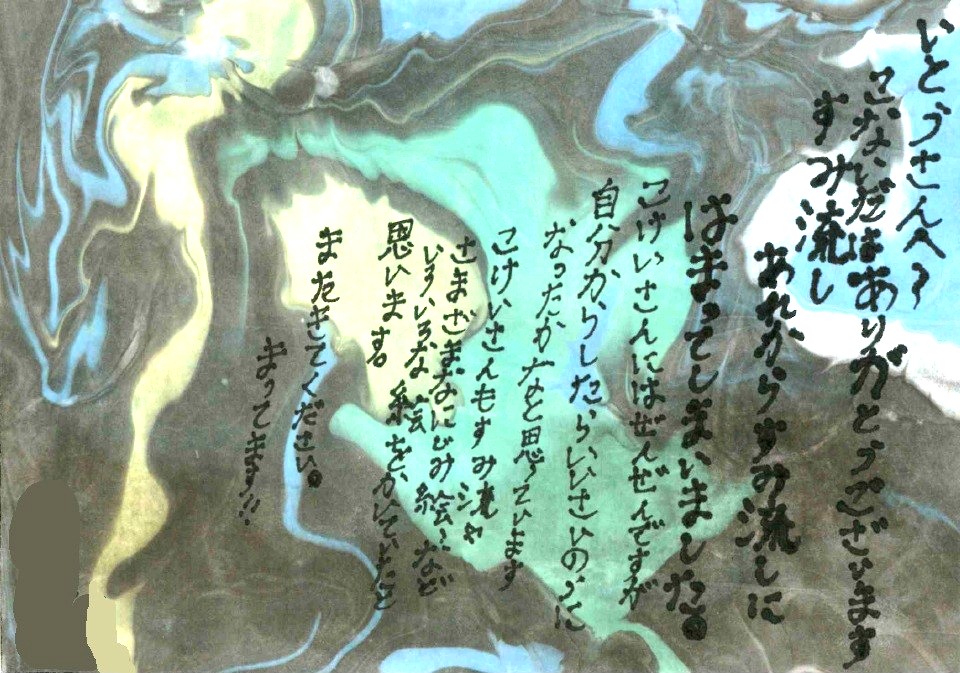 いとうさんへ
こないだはありがとうございます
すみ流し
あれからすみ流しに
はまってしまいました。
こけいさんにはぜんぜんですが
自分からしたらいいさいのうに
なったかなと思っています
こけいさんもすみ流や
さまざまなにじみ絵など
いろいろな絵
思います。絵をかいていたと
またきてください。
まってます!!